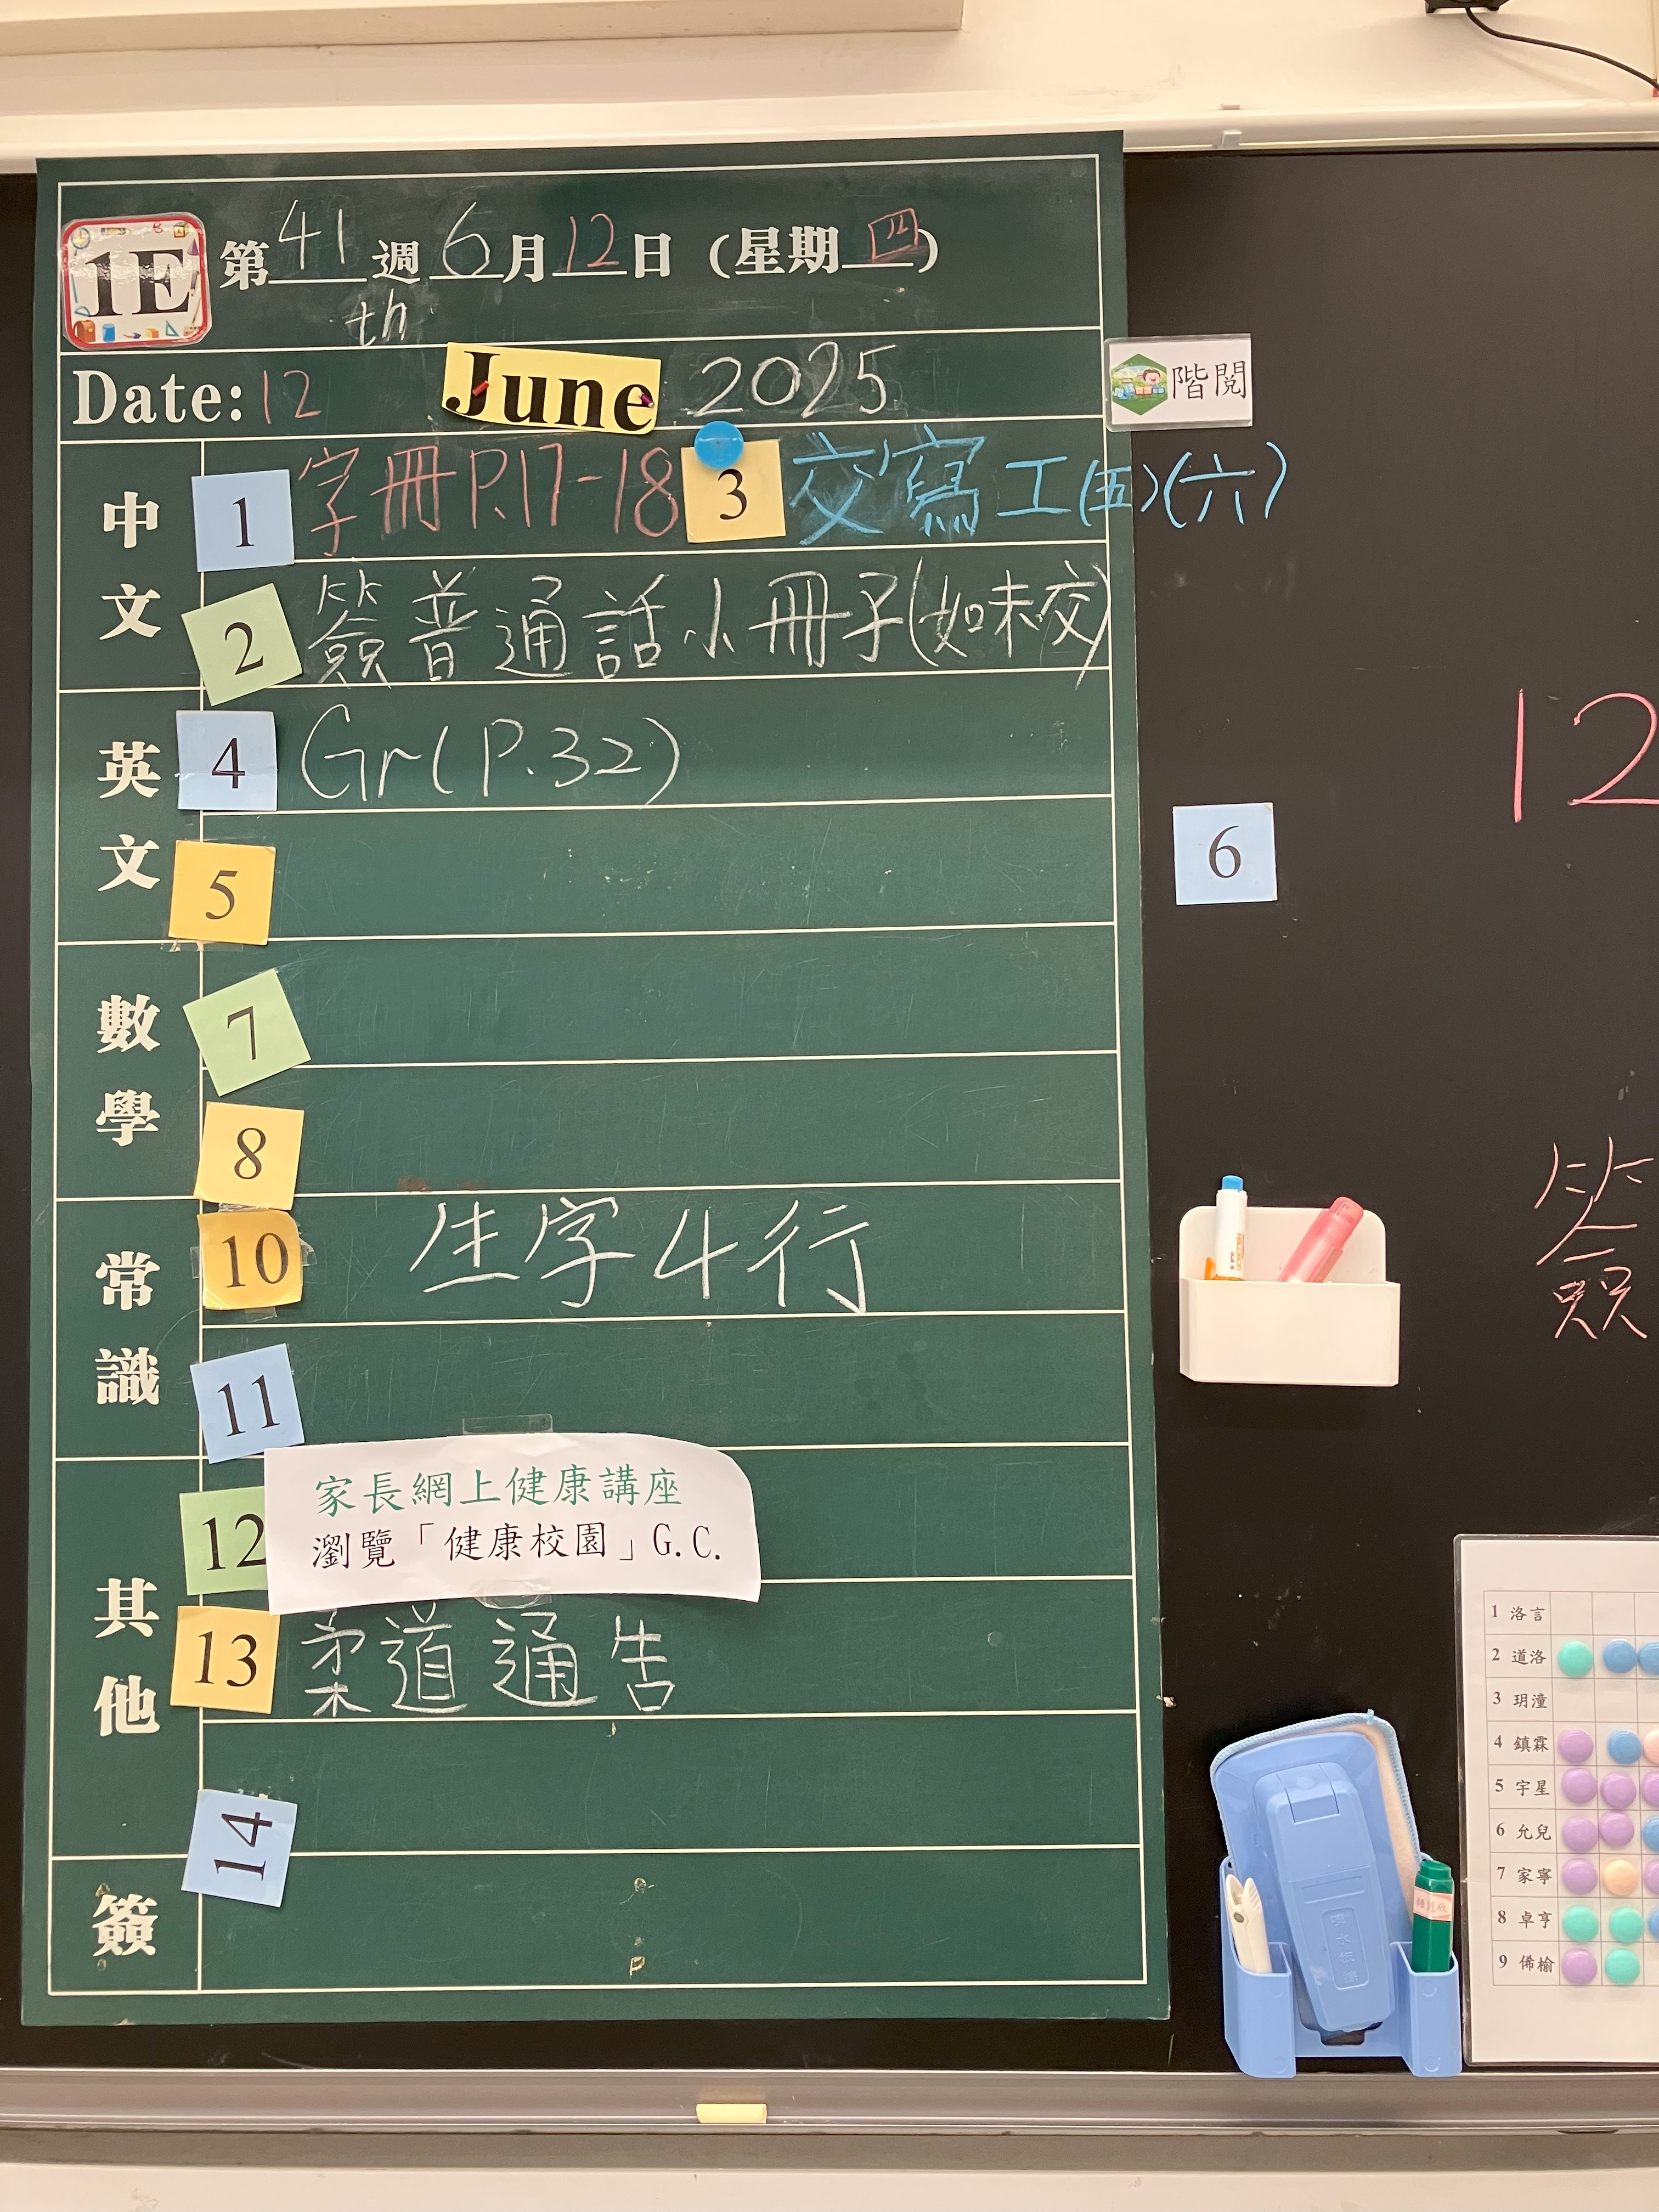 1E 第41週6月12日（星期四）
th
Date: 12 June 2025
階閱
中文
1 字冊P.17-18 3 交寫工(五)(六)
2 簽普通話小冊子(如未交)
英文
4 Gr(P.32)
5
6
12
數學
7
8
常識
10 生字4行
11
簽
其他
12 家長網上健康講座
瀏覽「健康校園」G.C.
13 柔道通告
14
簽
1 洛言
2 道洛
3 玥潼
4 鎮霖
5 宇星
6 允兒
7 家寧
8 卓亨
9 俙榆